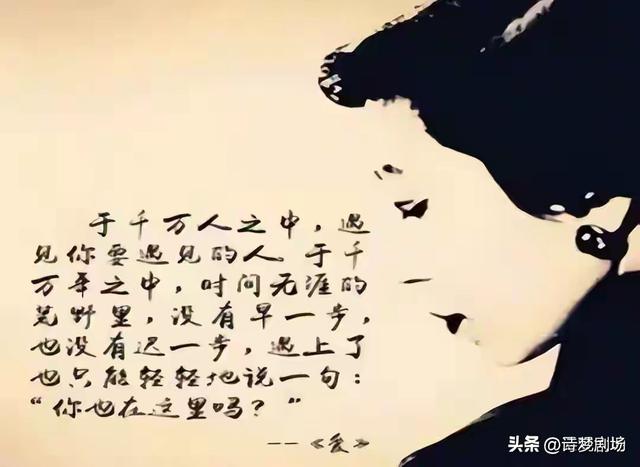 于千万人之中，遇
见你要遇见的人。于千
万年之中，时间无涯的
荒野里，没有早一步，
也没有迟一步，遇上了
也只能轻轻地说一句：
“你也在这里吗？”
--《爱》
头条 @诗梦剧场